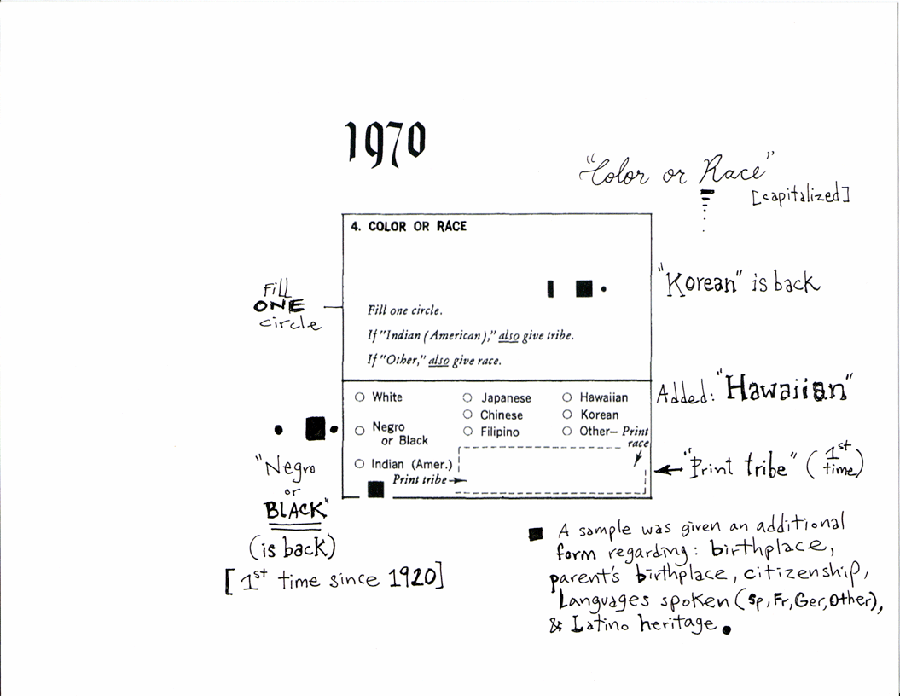 1970
"Color or Race"
[capitalized]
4. COLOR OR RACE
Fill
ONE
circle
"Korean" is back
Fill one circle.
If "Indian (American)," also give tribe.
If "Other," also give race.
Added: "Hawaiian"
White
Negro
or Black
Indian (Amer.)
Print tribe
Japanese
Chinese
Filipino
Hawaiian
Korean
Other— Print
race
"Print tribe" (1st
time)
"Negro
or
BLACK"
(is back)
[1st time since 1920]
A sample was given an additional
form regarding: birthplace,
parent's birthplace, citizenship,
Languages spoken (Sp, Fr, Ger, Other),
& Latino heritage.